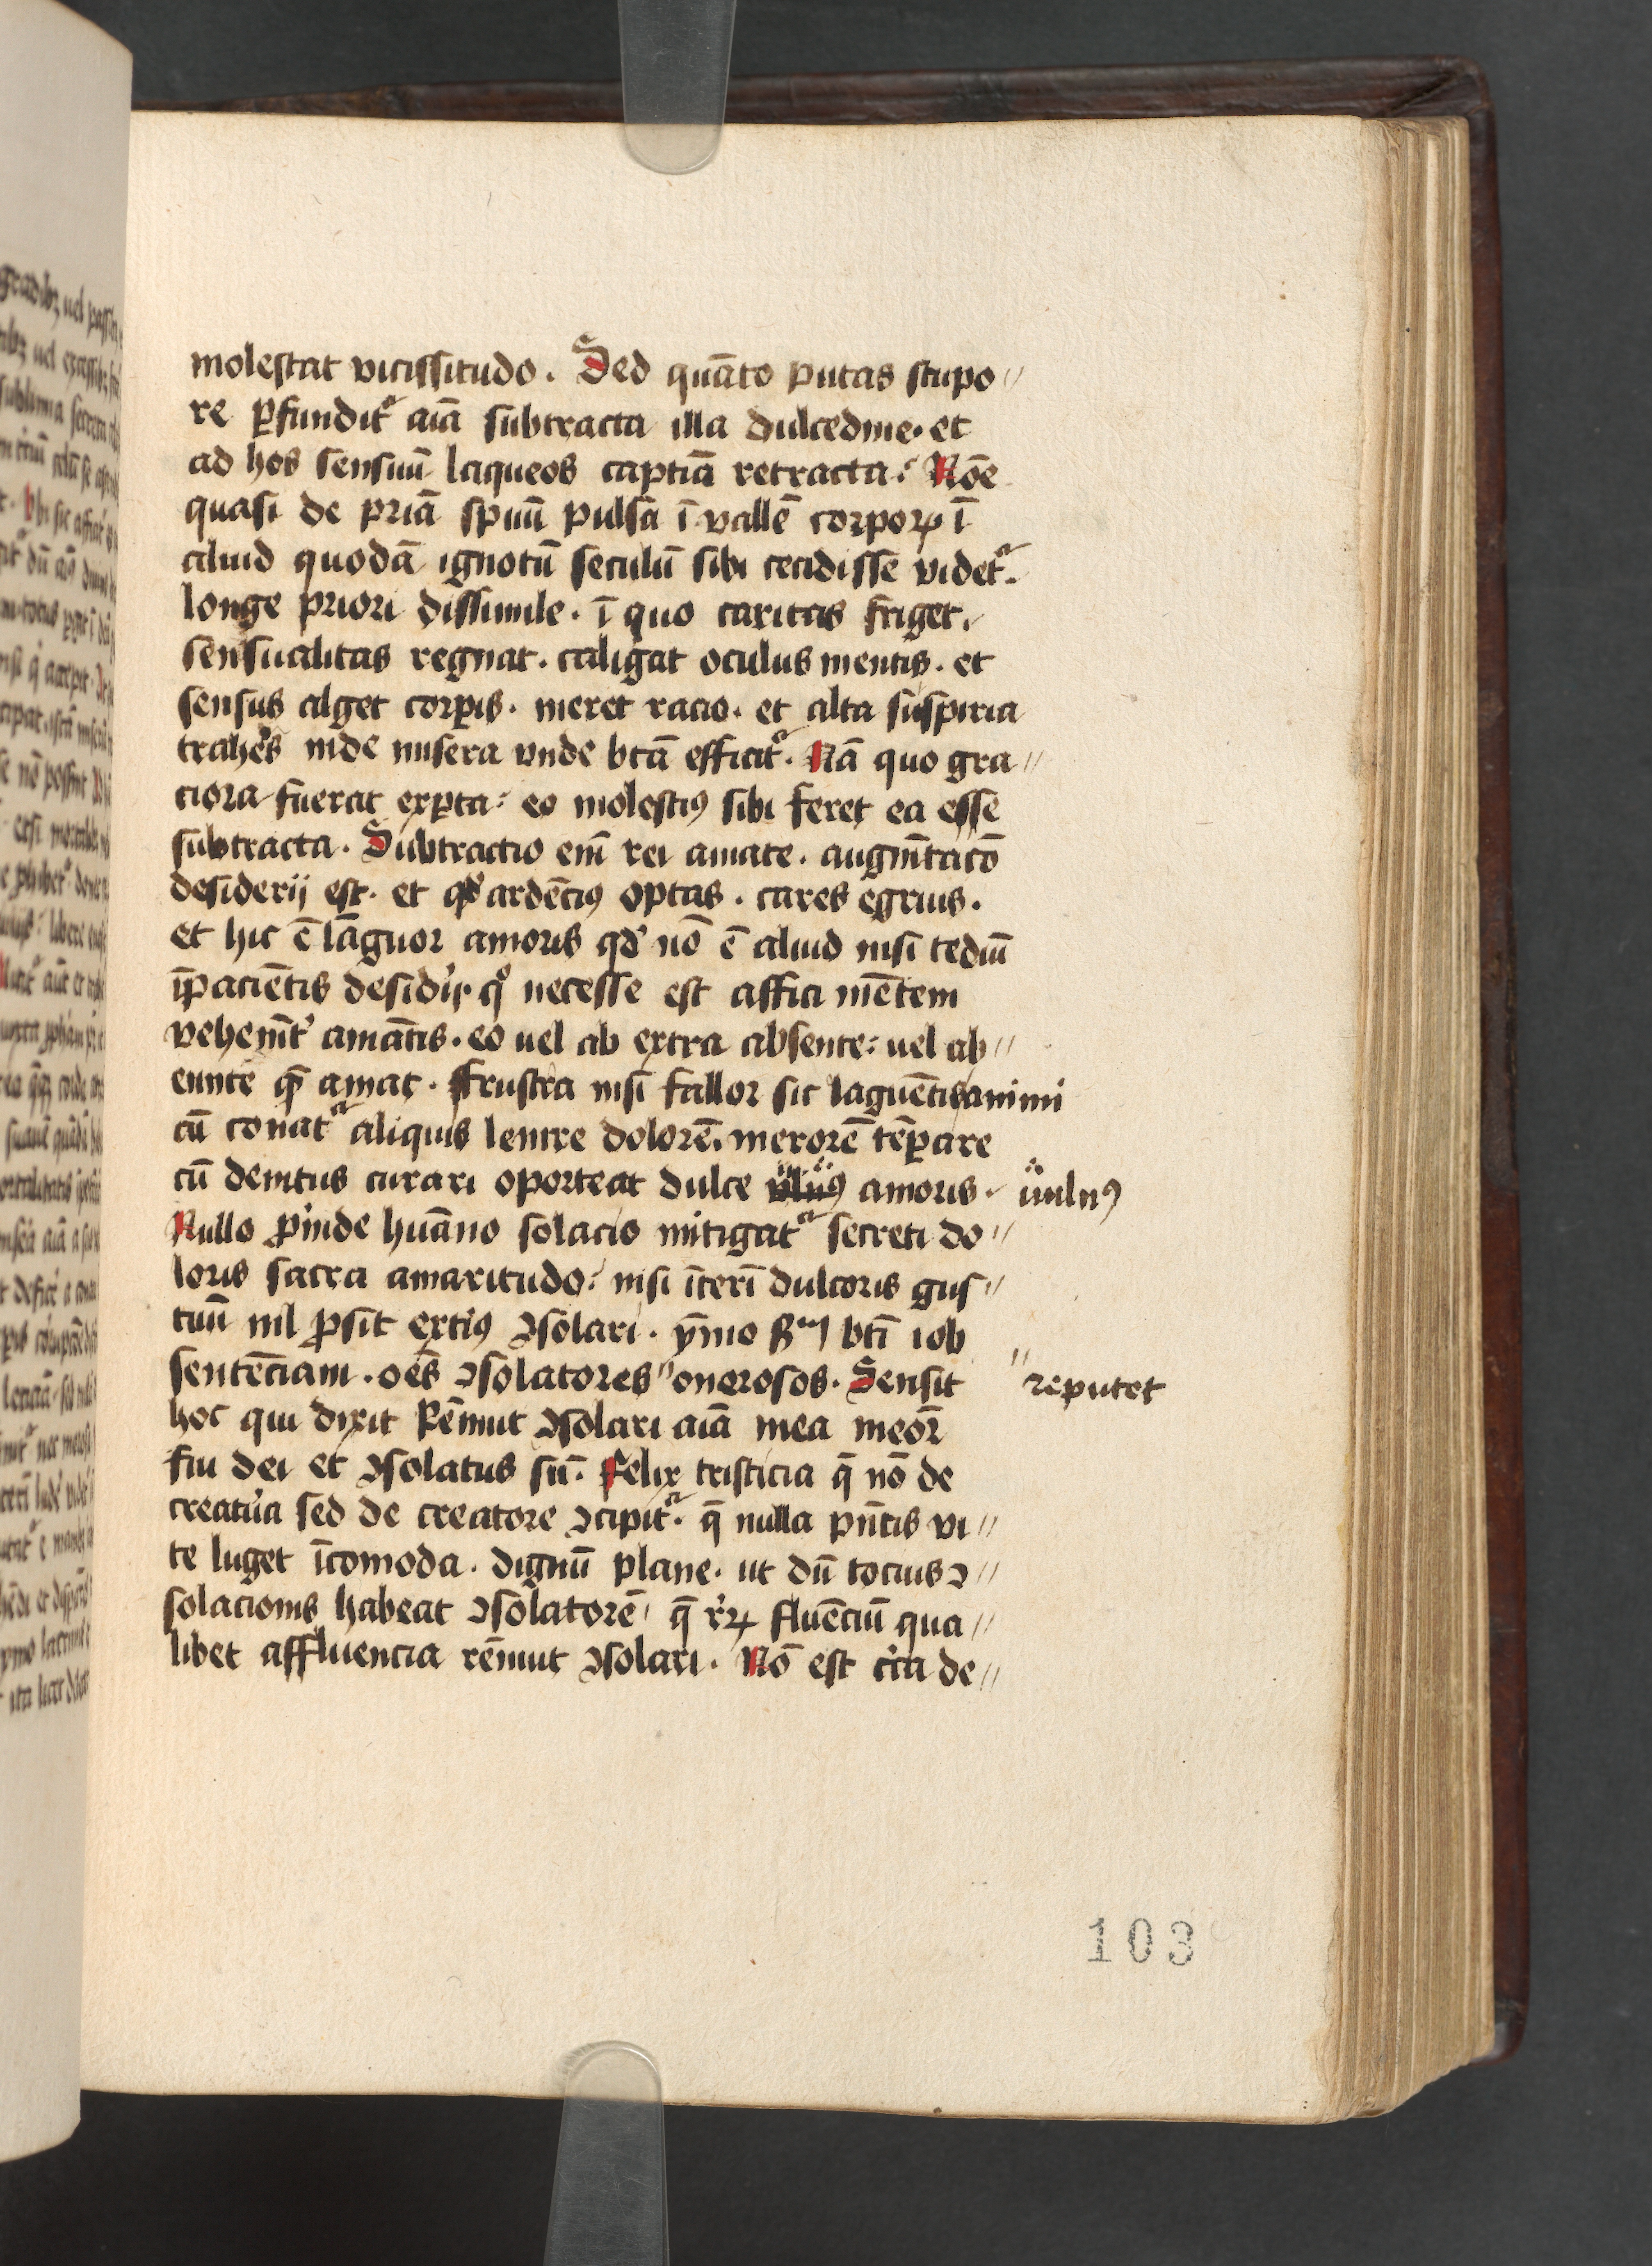 molestat vicissitudo. Sed quāto putas stupo//
re ꝑfundit᷑ aīā subtracta illa dulcedine. et
ad hos sensuū laqueos captiā retracta: Nōe
quasi de priā spūū pulsā ī vallē corpoꝝ ī
aliud quodā ignotū seculū sibi cecidisse videt᷑.
longe priori dissimile. ī quo caritas friget.
sensualitas regnat. caligat oculus mentis. et
sensus alget corꝑis. meret racio. et alta suspiria
trahēs inde misera vnde btā efficit᷑. Nā quo gra//
ciora fuerāt exꝑta: eo molestiꝰ sibi feret ea esse
subtracta. Subtractio em̄ rei amate. augm̄tacō
desiderij est. et qđ ardēciꝰ optas. cares egrius.
et hic ē lāguor amoris qđ nō ē aliud nisi tediū
īpaciētis desid'ij. qͦ necesse est affici mētem
vehem̄t' amātis. eo uel ab extra absente: uel ab//
eunte qē amat. ffrustra nisi fallor sic lāguētis animi
cū conat᷑ aliquis lenire dolorē. merorē tēꝑare
cū demtus curari oporteat dulce amoris. uulnꝰ
Nullo ꝓinde huāno solacio mitigat᷑ secreti do//
loris sacra amaritudo: nisi īterī dulcoris gus//
tuū nil ꝓsit extiꝰ ꝯsolari. ȳmo btī iob
sentēciam. oēs ꝯsolatores // onerosos. Sensit // reputet
hoc qui dixit Rēnuit ꝯsolari aīā mea meōr
fui dei et ꝯsolatus sū. Felix tristicia q̄ nō de
creatu͛a sed de creatore ꝯcipit᷑. q̄ nulla pn̄tis vi//
te luget īcomoda. dignū plane. ut dū tocius ꝯ//
solacionis habeat ꝯsolatorē. q̄ r'ꝝ fluēciū qua//
libet affluencia rēnuit ꝯsolari. Nō est c'ta de//
103